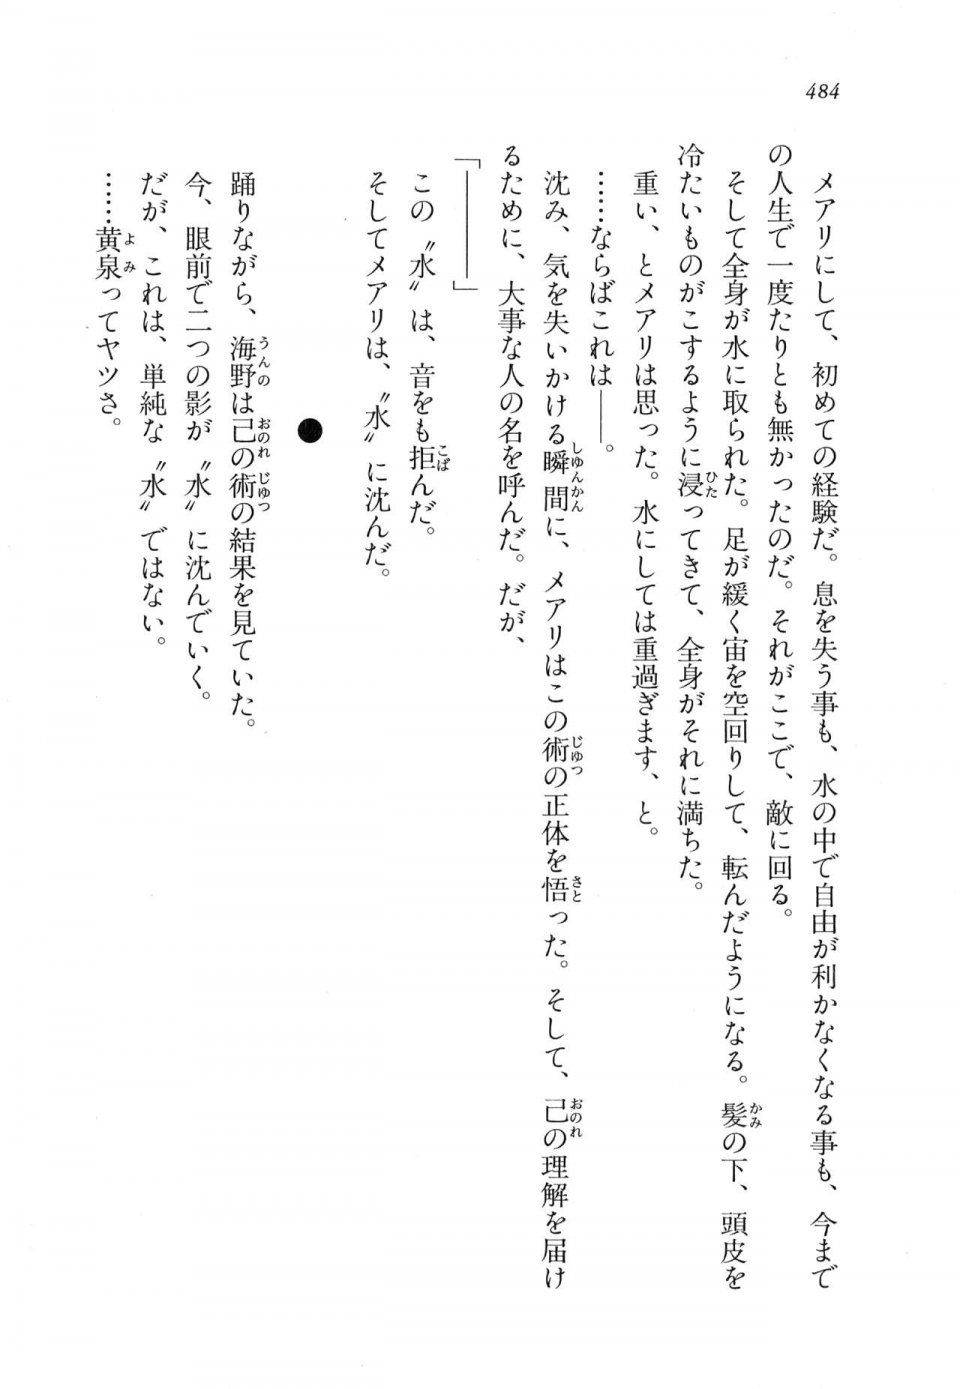 484
メアリにして、初めての経験だ。息を失う事も、水の中で自由が利かなくなる事も、今まで
の人生で一度たりとも無かったのだ。それがここで、敵に回る。
そして全身が水に取られた。足が緩く宙を空回りして、転んだようになる。髪の下、頭皮を
冷たいものがこするように浸ってきて、全身がそれに満ちた。
重い、とメアリは思った。水にしては重過ぎます、と。
……ならばこれは――。
沈み、気を失いかける瞬間に、メアリはこの術の正体を悟った。そして、己の理解を届け
るために、大事な人の名を呼んだ。だが、
「――――」
この〝水〟は、音をも拒んだ。
そしてメアリは、〝水〟に沈んだ。
●
踊りながら、海野は己の術の結果を見ていた。
今、眼前で二つの影が〝水〟に沈んでいく。
だが、これは、単純な〝水〟ではない。
……黄泉ってヤツさ。